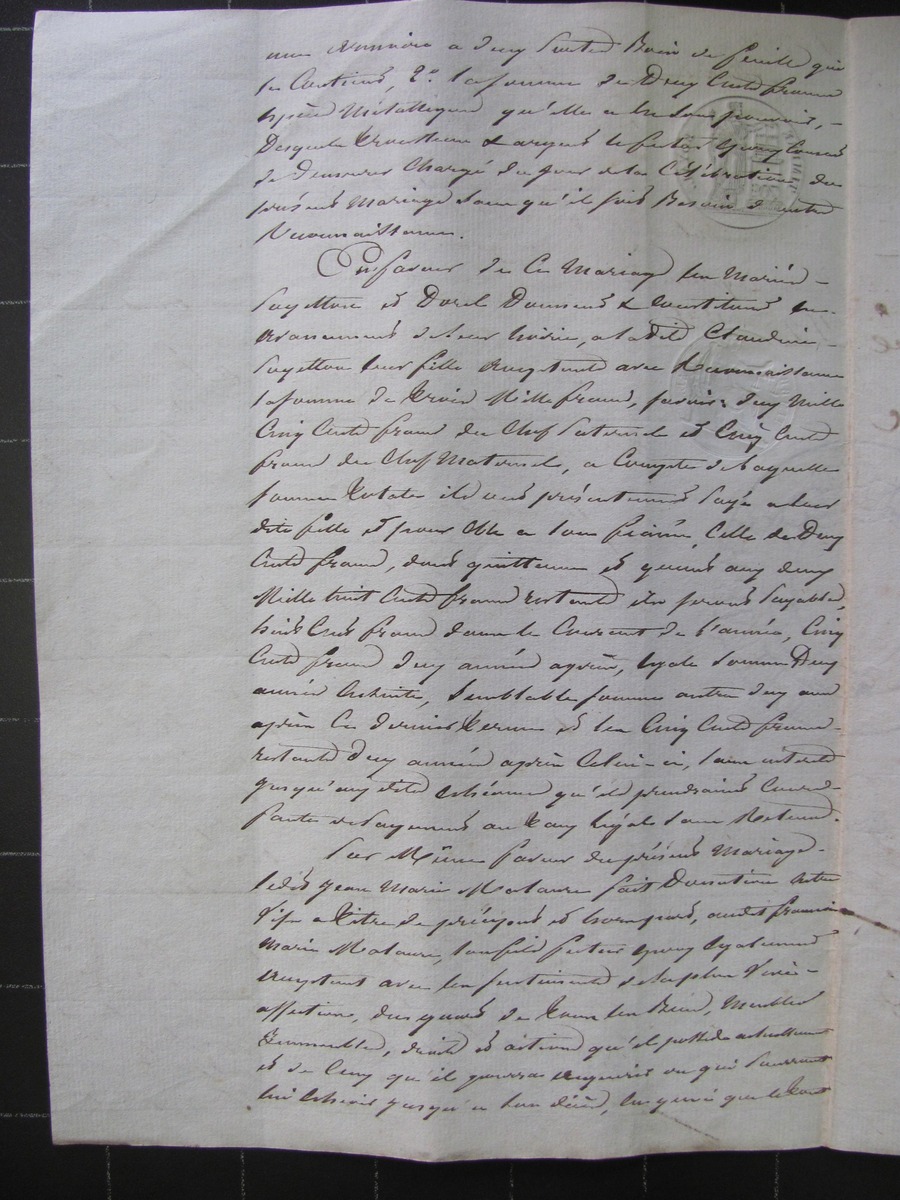 une armoire a deux portes Bois de feuille qui
les Contient, 2° la somme de Deux Cents francs
Espèces Métalliques qu'elle a en son pouvoir,
Desquels Trousseau & argent le futur époux
de Demeurer Chargé du jour de la Célébration du
présent Mariage sans qu'il soit Besoin d'autre
Reconnaissance.
En faveur de Ce Mariage les Mariés
Payetton et Dorel Donnent & Constituent en
avancement de leur hoirie, a ladite Claudine
Payetton leur fille acceptant avec Reconnaissance
la somme de Trois Mille francs, savoir: deux Mille
Cinq Cents francs du Chef Paternel et Cinq Cents
francs du Chef Maternel, a Compte de laquelle
somme Totale ils ont présentement payé a leur
dite fille et pour Elle a son fiancé, Celle de Deux
Cents francs, dont quittance et quant aux deux
Mille huit Cents francs restants ils seront payables,
huit Cents francs dans le Courant de l'année, Cinq
Cents francs deux années après, égale somme Deux
années Ensuite, semblable somme autres deux ans
après Ce dernier Terme et les Cinq Cents francs
restants deux années après Celui-ci, sans intérêts
jusqu'aux dites échéances qu'ils prendraient Cours
faute de payement au Taux légal sans Retenue.
Par Même faveur du présent Mariage
ledit Jean Marie Malaure fait Donation Entre
Vifs a Titre de préciput et hors part, audit François
Marie Malaure, son fils futur époux également
acceptant avec les sentiments de la plus Vive
affection, du quart de Tous les Biens, Meubles
Immeubles, droits et actions qu'il possède actuellement
et de Ceux qu'il pourra acquérir ou qui pourront
lui échoir jusqu'a son décès, lequel quart